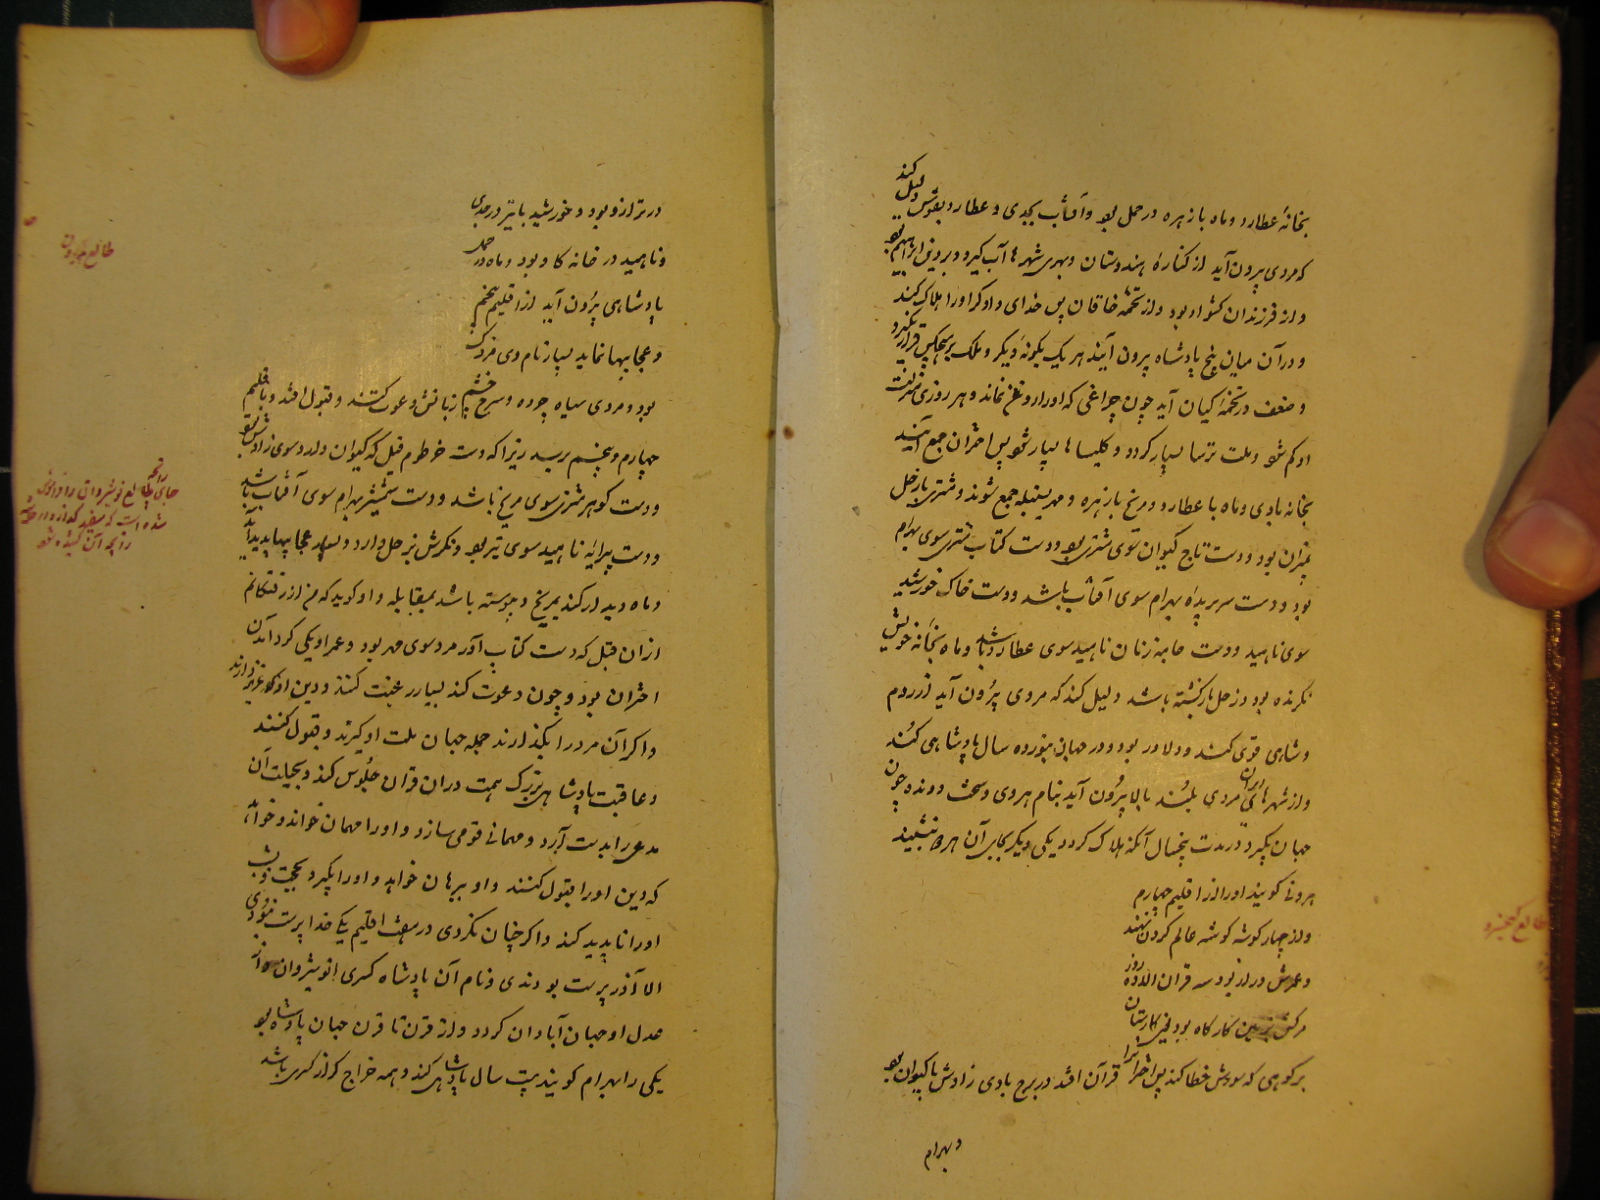 بخانهٔ عطارد و ماه با زهره در حمل بود و آفتاب بجدی و عطارد بقوس دلیل کند
که مردی بیرون آید از کنارهٔ هندوستان و بهری شهرها آب گیرد و بر دین ابراهیم بود
و از فرزندان او بود و از تخمه خاقان پس خدای دادگر او را هلاک کند
و در آن میان پنج پادشاه بیرون آیند هر یک بگونهٔ دیگر و ملک بر هیچکس قرار نگیرد
و ضعف در تخمهٔ کیان آید چون چراغی که او را روغن نماند و هر روزی منزلت
او کم شود و ملت ترسا بسیار گردد و کلیساها بسیار شود پس اختران جمع آیند
بخانه بادی و ماه با عطارد و مریخ با زهره و مهر بسنبله جمع شوند و مشتری با زحل
بمیزان بود و دست تاج کیوان سوی مشتری بود و دست کتاب مشتری سوی بهرام
بود و دست سر بریده بهرام سوی آفتاب باشد و دست خاک خورشید
سوی ناهید و دست جامه زنان ناهید سوی عطارد باشد و ماه بخانه خویش
نگرنده بود و زحل بازگشته باشد دلیل کند که مردی بیرون آید از روم
و شاهی قوی کند و دلاور بود و در جهان پنوزده سال پادشاهی کند
و از شهرهای ایران مردی بلند بالا بیرون آید بنام هروی و سخت دونده چون
جهان بگیرد در مدت پنجسال آنگه هلاک گردد یکی دیگر بجای آن هرو نشیند
هرونی گویند او را از اقلیم چهارم
و از چهار گوشه گوشه عالم گردن نهند
و عمرش دراز بود سه قران الا ده روز
مرکش کارگاه بود
بر کوهی که سورش خطا کند پس اختران را قرآن افتد در برج بادی زادش با کیوان بود
و بهرام
طالع کیخسرو
در ترازو بود و خورشید با تیر در جدی
و ناهید در خانه گاو بود و ماه در حمل
پادشاهی بیرون آید از اقلیم پنجم
و عجایبها نماید بسیار نام وی مزدک
بود و مردی سیاه چرده و سرخ چشم زبانش دعوت کنند و قبول افتد و باقلیم
چهارم و پنجم برسد زیرا که دست خرطوم فیل که کیوان دارد سوی زادش بود
و دست گوهر مشتری سوی مریخ باشد و دست شمشیر بهرام سوی آفتاب باشد
و دست پیرایه ناهید سوی تیر بود و نگرش بزحل دارد و بسیار عجایبها پدید آید
و ماه دیدار کند بمریخ و پیوسته باشد بمقابله و او گوید که من از رفتگانم
از آن قبل که دست کتاب آذر مرد سوی مهر بود و عمر او یکی گرد آمدن
اختران بود و چون دعوت کند بسیار رغبت کنند و دین او عزیز دارند
و اگر آن مرد را بگذارند جمله جهان ملت او گیرند و قبول کنند
و عاقبت پادشاهی بزرگ همت در آن قران جلوس کند و بحیلت آن
مدعی را بدست آرد و مهمانی قومی سازد و او را مهمان خواند و خواند
که دین او را قبول کنند و او برهان خواهد و او را بگیرد بحجت و
او را ناپدید کند و اگر چنان نکردی در هفت اقلیم یک خداپرست نبودی
الا آذرپرست بودندی و نام آن پادشاه کسری انوشیروان و از
عدل او جهان آبادان گردد و از قرن تا قرن جهان پادشاه بود
یکی را بهرام گویند بیست سال پادشاهی کند و همه خراج از کسری باشد
طالع همایون
زایجه
جای طالع نوشیروانی را
شده است که سفید گذارده
زایجه آن کشیده شود